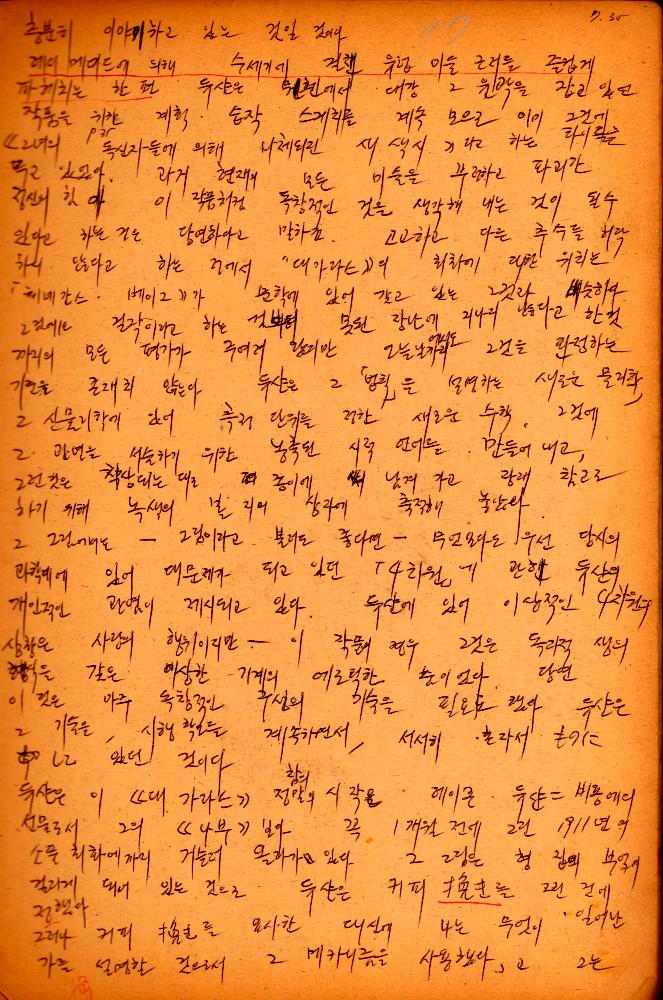 충분히 이야기하고 있는 것일 것이다
레디메이드에 의해 수세기에 걸친 유럽 미술 근러를 즐겁게
파헤치는 한편 뒤샹은 뮌헨에서 대강 그 윤곽을 잡고 있던
작품을 위한 계획·습작 스케치를 계속 모으고 이미 그것에
《그녀의 독신자들에 의해 나체로된 새색시》라고 하는 타이틀을
두고 있었다. 과거 현재의 모든 미술을 부정하고 타파한
정신의 힘이 이 작품처럼 독창적인 것을 생각해 내는 것이 될 수
있다고 하는 것은 당연하다고 말하죠. 고고하고 다른 추수를 허락
하지 않는다고 하는 점에서 "대가라스》의 회화에 대한 위치는
「피네간스·웨이크》가 문학에 있어 갖고 있는 그것과 비슷하다
그것에는 걸작이라고 하는 것부터 못된 장난에 지나지 않는다고 한 것
까지의 모든 평가가 주어져 왔지만 오늘날까지 그것을 판정하는
기준은 존재치 않는다 뒤샹은 그 「법칙」을 설명하는 새로운 물리학,
그 신물리학에 있어 측정 단위를 정한 새로운 수학, 그것에
그 관념을 서술하기 위한 농축된 시적 언어를 만들어 내고,
그런 것은 착상되는 대로 종이에 남겨 가고 장래 참고로
하기 위해 녹색의 빌로드의 상자에 축적해 놓았다
그 그림에는 — 그림이라고 불러도 좋다면 — 무엇보다도 우선 당시의
과학계에 있어 대문제가 되고 있던 「4차원」에 관한 뒤샹의
개인적인 관념이 제시되고 있다. 뒤샹에 있어 이상적인 4차원의
상황은 사랑의 행위이지만 — 이 작품의 경우 그것은 독자적 생의
형식을 갖은 이상한 기계의 에로틱한 춤이었다 당연
이것은 아주 독창적인 구성의 기술을 필요로 했다 뒤샹은
그 기술을, 시행착오를 계속하면서, 서서히 혼자서
있던 것이다
뒤샹은 이 《대가라스》 정말의 시작을 레이몬 뒤샹=비용에의
선물로서 그의 《4부》보다 꼭 1개월 전에 그린 1911년의
소품 회화에까지 거슬러 올라가 있다 그 그림은 형 집의 부엌에
걸리게 되어 있는 것으로 뒤샹은 커피 挽き를 그린 것에
정했다
그러나 커피 挽き를 묘사한 대신에 나는 무엇이 일어난
가를 설명한 것으로서 그 메카니즘을 사용했다, 고 그는